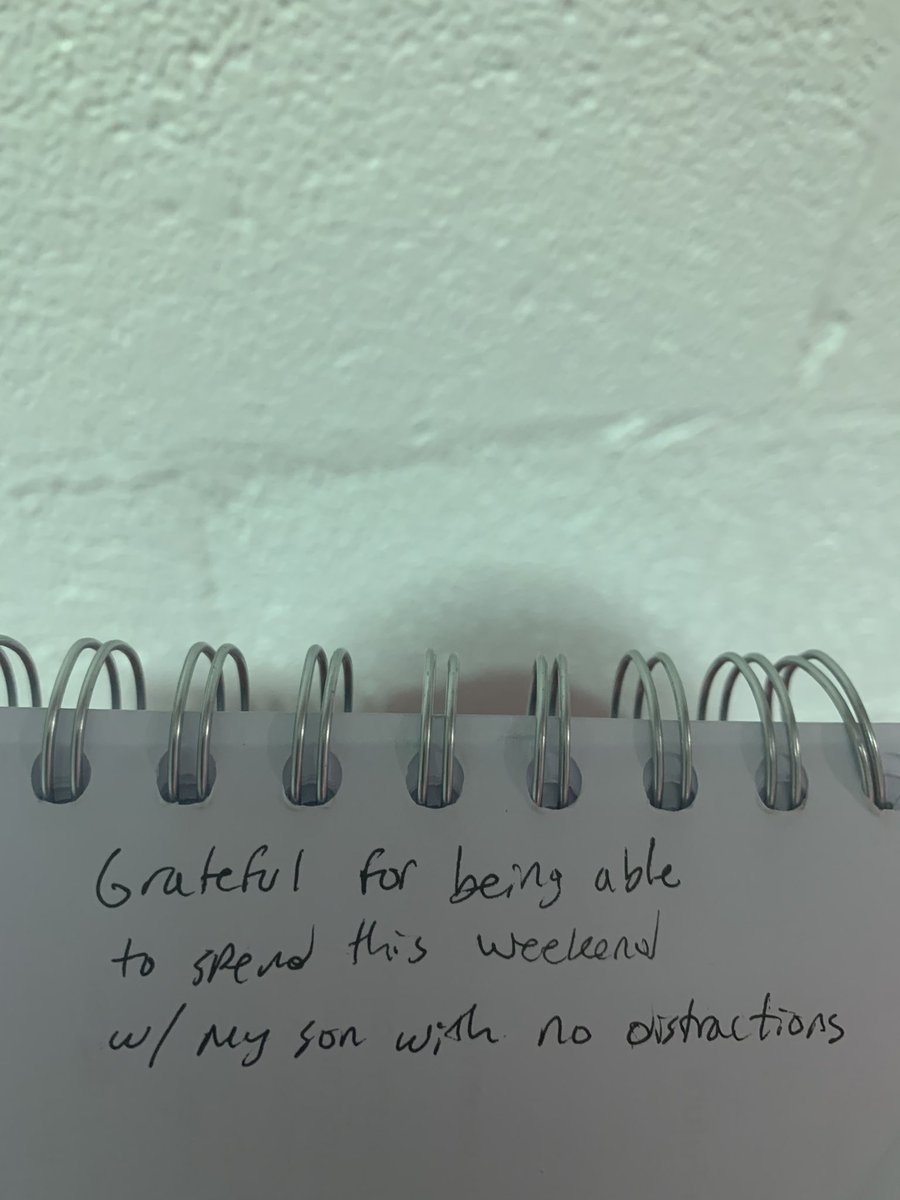 Grateful for being able
to spend this weekend
w/ my son with no distractions